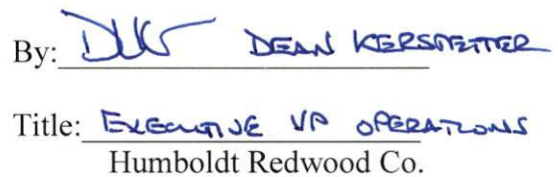 By: DEAN KERSTETTER
Title: EXECUTIVE VP OPERATIONS
Humboldt Redwood Co.